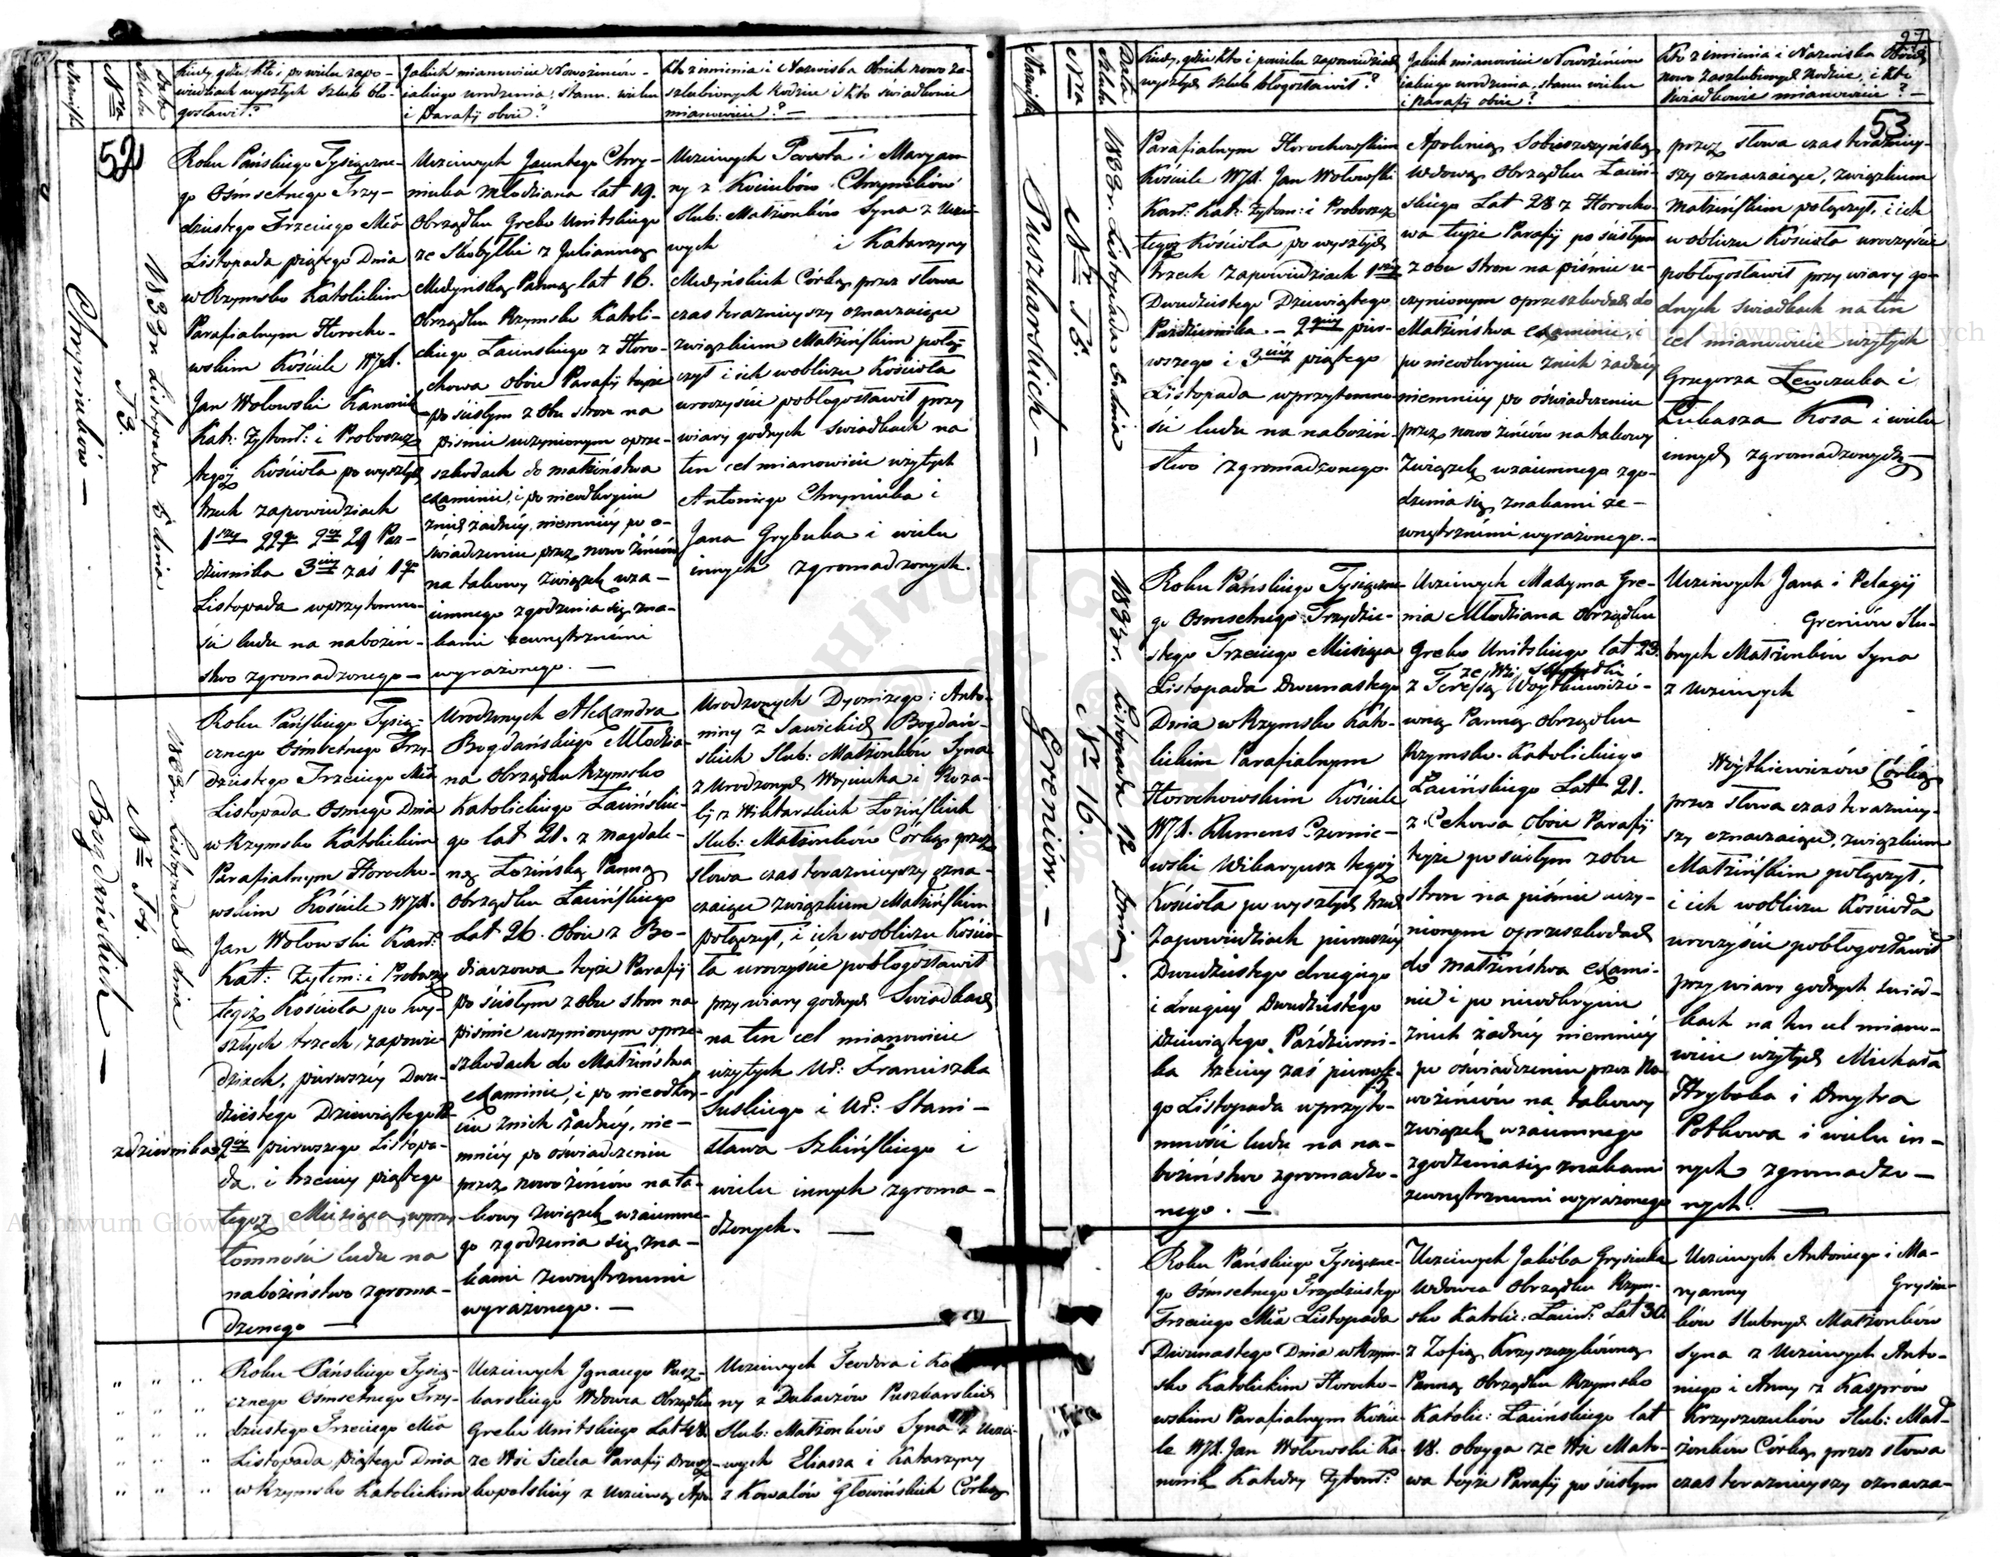 Nazwiska
Nra
Data
Ślubu
Kiedy, gdzie, kto i po wielu zapo-
wiedziach wyszłych Ślub bło-
gosławił?
Jakich mianowicie Nowożeńców
jakiego urodzenia, stanu, wieku
i Parafij oboie?
Kto z imienia i Nazwiska obuich nowo za-
szlubionych Rodzice i kto świadkowie
mianowicie? —
52
Chryniuków —
N 13.
1833 r. Listopada 5 dnia
Roku Pańskiego Tysiączne-
go Osmsetnego Trzy-
dziestego Trzeciego Mca
Listopada piątego Dnia
w Rzymsko Katolickim
Parafialnym Horocho-
wskim Kościele WJX.
Jan Wołowski Kanonik
Kat: Zytom: i Proboszcz
tegoż Kościoła po wyszłych
trzech zapowiedziach
1szey 22go 2giey 29 Paz-
dziernika 3ciey zaś 1go
Listopada w przytomno-
ści ludu na nabożeń-
stwo zgromadzonego —
Uczciwych Jacentego Chry-
niuka Młodziana lat 19.
Obrządku Greko Unitskiego
ze Skobyłki z Julianną
Medyńską Panną lat 16.
Obrządku Rzymsko Katoli-
ckiego Łacinskiego z Horo-
chowa oboie Parafij teyże
po ścisłym z obu stron na
piśmie uczynionym oprze-
szkodach do małżeństwa
examinie, i po nieodkryciu
znich żadney, niemniey po o-
świadczeniu przez nowożeńców
na takowy związek wza-
iemnego zgodzenia się zna-
kami zewnętrznémi
wyrażonego. —
Uczciwych Pawła i Maryan-
ny z Kociubów Chryniuków
Slub: Małżonków Syna z Uczci-
wych i Katarzyny
Medyńskich Córką przez słowa
czas teraznieyszy oznaczaiące
związkiem Małżeńskim połą-
czył i ich wobliczu Kościoła
uroczyście pobłogosławił przy
wiary godnych świadkach na
ten cel mianowicie użytych
Antoniego Chryniuka i
Jana Grybuka i wielu
innych zgromadzonych.
Bogdańskich —
N 14.
1833 r. Listopada 8 dnia
Roku Pańskiego Tysią-
cznego Osmsetnego Trzy-
dziestego Trzeciego Mca
Listopada Osmego Dnia
w Rzymsko Katolickim
Parafialnym Horocho-
wskim Kościele WJX.
Jan Wołowski Kan:
Kat: Zytom: i Proboszcz
tegoż Kościoła po wy-
szłych trzech zapowie-
dziach, pierwszéy Dwu-
dziestego Dziewiątego Pa-
zdziernika 2giey pierwszego Listopa-
da, i trzeciey piątego
tegoż Miesiąca, w przy-
tomności ludu na
nabożeństwo zgroma-
dzonego —
Urodzonych Alexandra
Bogdańskiego Młodzia-
na obrządku Rzymsko
Katolickiego Łacińskie-
go lat 21. z Magdale-
ną Łozińską Panną
obrządku Łacińskiego
Lat 26. oboie z Bo-
diaczowa teyże Parafij
po ścisłym z obu stron na
piśmie uczynionym oprze-
szkodach do Małżeństwa
examinie, i po nieodkry-
ciu znich żadnéy, nie-
mniéy po oświadczeniu
przez nowożeńców na ta-
kowy związek wzaiemne-
go zgodzenia się zna-
kami zewnętrznemi
wyrażonego. —
Urodzonych Dyonizego i Anto-
niny z Sawickich Bogdań-
skich Slub: Małżonków Syna
z Urodzonych Woyciecha i Roza-
lij z Wiktarskich Łozińskich
Slub: Małżonków Córką przez
słowa czas teraznieyszy ozna-
czaiące związkiem Małżeńskim
połączył, i ich wobliczu Kościo-
ła uroczyście pobłogosławił
przy wiary godnych Swiadkach
na ten cel mianowicie
użytych Ur: Franciszka
Suskiego i Ur: Stani-
sława Szkińskiego i
wielu innych zgroma-
dzonych. —
Roku Pańskiego Tysią-
cznego Osmsetnego Trzy-
dziestego Trzeciego Mca
Listopada piątego Dnia
w Rzymsko Katolickim
Uczciwych Ignacego Pusz-
karskiego Wdowca Obrządku
Greko Unitskiego Lat 48.
ze Wsi Sielca Parafij Drusz-
kopolskiéy z Uczciwą Apo-
Uczciwych Teodora i Ka
ny z Dubaczów Puszkarskich
Slub: Małżonków Syna z Uczci-
wych Eliasza i Katarzyny
z Kowalów Głowińskich Córką
27
Nazwiska
Nra
Data
Szlubu
Kiedy, gdzie kto i powielu zapowiedziach
wyszłych Szlub błogosławił?
Jakich mianowicie Nowożeńców
jakiego urodzenia, stanu wieku
i Parafij oboie?
Kto z imienia i Nazwiska Oboich
nowo zaszlubionych Rodzice, i kto
świadkowie mianowicie? —
53
Puszkarskich —
N 15.
1833 r. Listopada 5 dnia
Parafialnym Horochowskim
Kościele WJX. Jan Wołowski
Kan: Kat: Zytom: i Proboszcz
tegoż Kościoła po wyszłych
trzech zapowiedziach 1szey
Dwudziestego Dziewiątego
Pazdziernika. — 2giey pier-
wszego i 3ciey piątego
Listopada w przytomno-
ści ludu na nabożeń-
stwo zgromadzonego
Apolinią Sobieszczyńską
Wdową Obrządku Łaciń-
skiego Lat 28 z Horocho-
wa teyże Parafij po ścisłym
z obu stron na piśmie u-
czynionym oprzeszkodach do
Małżeństwa examinie, i
po nieodkryciu znich żadnéy
niemniéy po oświadczeniu
przez nowożeńców na takowy
Związek wzaiemnego zgo-
dzenia się znakami ze-
wnętrznémi wyrażonego. —
przez słowa czas terazniey-
szy oznaczaiące, związkiem
Małżeńskim połączył, i ich
wobliczu Kościoła uroczyście
pobłogosławił przy wiary go-
dnych świadkach na ten
cel mianowicie użytych
Grzegorza Lewczuka i
Łukasza Kosa i wielu
innych zgromadzonych —
Greniów. —
N 16.
1833 r. Listopada 12 Dnia.
Roku Pańskiego Tysiączne-
go Osmsetnego Trzydzie-
stego Trzeciego Miesiąca
Listopada Dwunastego
Dnia w Rzymsko Kato-
lickim Parafialnym
Horochowskim Kościele
WJX. Klemens Czernie-
wski Wikaryusz tegoż
Kościoła po wyszłych trzech
Zapowiedziach pierwszéy
Dwudziestego drugiego
i drugiéy Dwudziestego
dziewiątego Października-
ka trzeciey zaś pierwsze-
go Listopada w przyto-
mności ludu na na-
bożeństwo zgromadzo-
nego. —
Uczciwych Maxyma Gre-
nia Młodziana Obrządku
Greko Unitskiego lat 23.
ze Wsi Skobyłki
z Teressą Woytkiewiczó-
wną Panną obrządku
Rzymsko-Katolickiego
Łacińskiego Lat 21.
z Cehowa oboie Parafij
teyże po ścisłym z obu
stron na piśmie uczy-
nionym oprzeszkodach
do Małżeństwa exami-
nie i po nieodkryciu
znich żadnéy niemniéy
po oświadczeniu przez No-
wożeńców na takowy
związek wzaiemnego
zgodzenia się znakami
zewnętrznemi wyrażonego
Uczciwych Jana i Pelagij
Greniów Slu-
bnych Małżonków Syna
z Uczciwych
Woytkiewiczów Córką
przez słowa czas terazniey-
szy oznaczaiące, związkiem
Małżeńskim połączył,
i ich wobliczu Kościoła
uroczyście pobłogosławił
przy wiary godnych świad-
kach na ten cel miano-
wicie użytych Michała
Hryboka i Dmytra
Potkowa i wielu in-
nych zgromadzo-
nych. —
Roku Pańskiego Tysiączne-
go Osmsetnego Trzydziestego
Trzeciego Mca Listopada
Dwunastego Dnia w Rzym-
sko Katolickim Horocho-
wskim Parafialnym Koście-
le WJX. Jan Wołowski Ka-
nonik Katedry Zytom:
Uczciwych Jakóba Grysiuka
Wdowca Obrządku Rzym-
sko Katolic: Łacin: Lat 30.
z Zofią Krzyszczukówną
Panną Obrządku Rzymsko
Katolic: Łacińskiego lat
18. oboyga ze Wsi Mato-
wa teyże Parafij po ścisłym
Uczciwych Antoniego i Ma-
ryanny Grysiu-
ków Slubnych Małżonków
Syna z Uczciwych Anto-
niego i Anny z Kasprów
Krzyszczuków Slub: Mał-
żonków Córką przez słowa
czas teraznieyszy oznacza-
Archiwum Główne Akt Dawnych